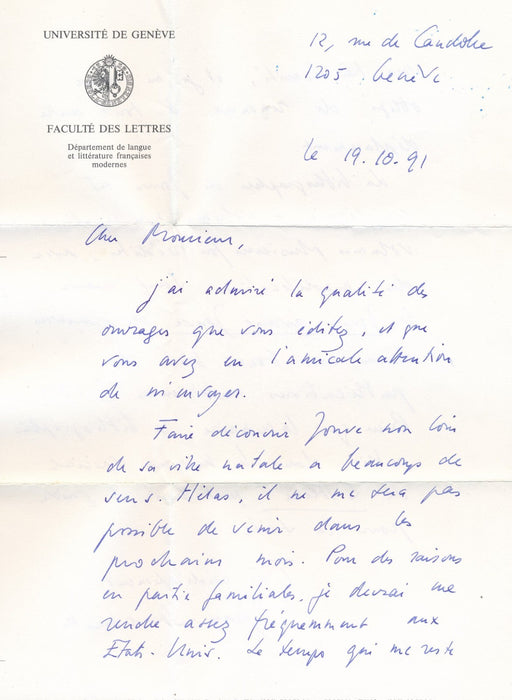 UNIVERSITÉ DE GENÈVE
FACULTÉ DES LETTRES
Département de langue
et littérature françaises
modernes
12, rue de Candolle
1205 Genève
le 19.10.91
Cher Monsieur,
j'ai admiré la qualité des
ouvrages que vous éditez, et que
vous avez eu l'amicale attention
de m'envoyer.
Faire découvrir Jouve non loin
de sa ville natale a beaucoup de
sens. Hélas, il ne me sera pas
possible de venir dans les
prochains mois. Pour des raisons
en partie familiales, je devrai me
rendre assez fréquemment aux
Etats-Unis. Le temps qui me reste